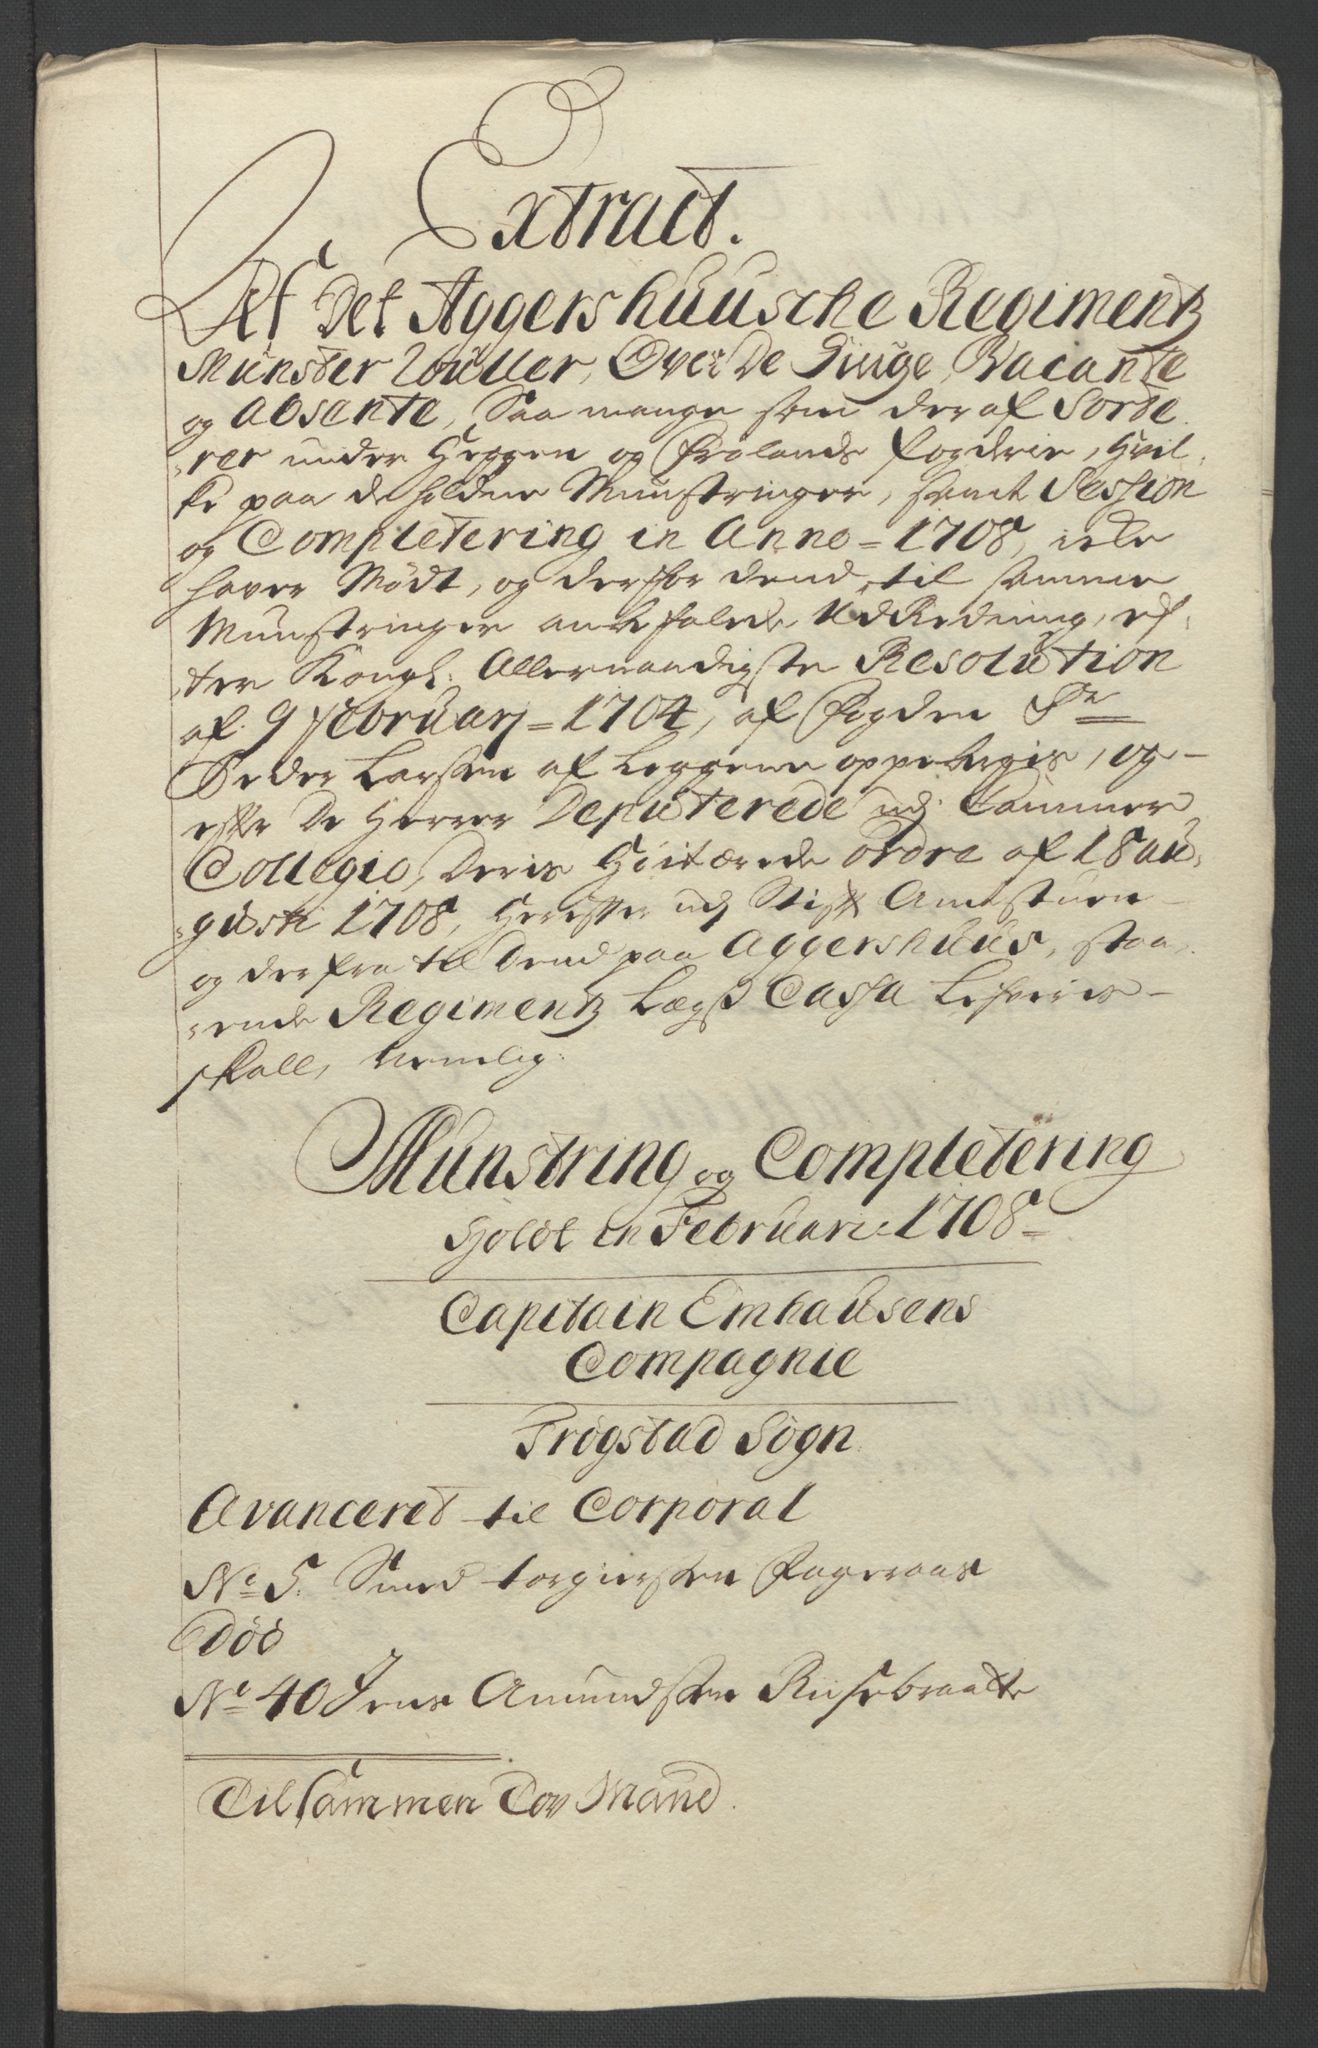 Extract.
Af Det Aggershuusche Regimentz
Munster Rouller, Over De Siuge, Vacante
og Absente, Saa mange som der af Sorte-
rer under Heggen og Frølands fogderie, Hvil-
ke paa de holdne Munstringer, samt Session
og Completering in Anno 1708, icke
hafver Mødt, og derfor dend, til samme
Munstringer anbefalede UdRedning, ef-
ter Kongl: Allernaadigste Resolution
af 9 Februarij 1704, af Fogden Sr
Peder Larsen af Leggene oppebergis, og
efter De Herrer Deputerede udj Cammer
Collegio, Deris Høitærede ordre af 18 au-
gusti 1708, Herefter udj Stift Amtstuen
og derfra til Dend paa Aggershuus, staa-
ende Regimentz Lægs Cassa Lefveris
skall, Nemlig:
Munstring og Completering
Holdt in Februari 1708
Capitain Emhausens
Compagnie
Trøgstad Sogn
Avanceret til Corporal
No 5. Suend torgiersen Fageraas
Død
No 40 Jens Amundsen Rusebraatte
Tilsammen Tov Mand.